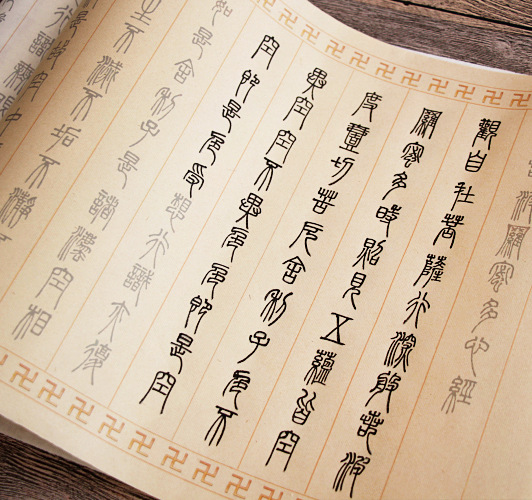 波羅蜜多心經
觀自在菩薩行深般若波
羅蜜多時照見五蘊皆空
度一切苦厄舍利子色不
異空空不異色色即是空
空即是色受想行識亦復
如是舍利子是諸法空相
生不滅不垢不淨不